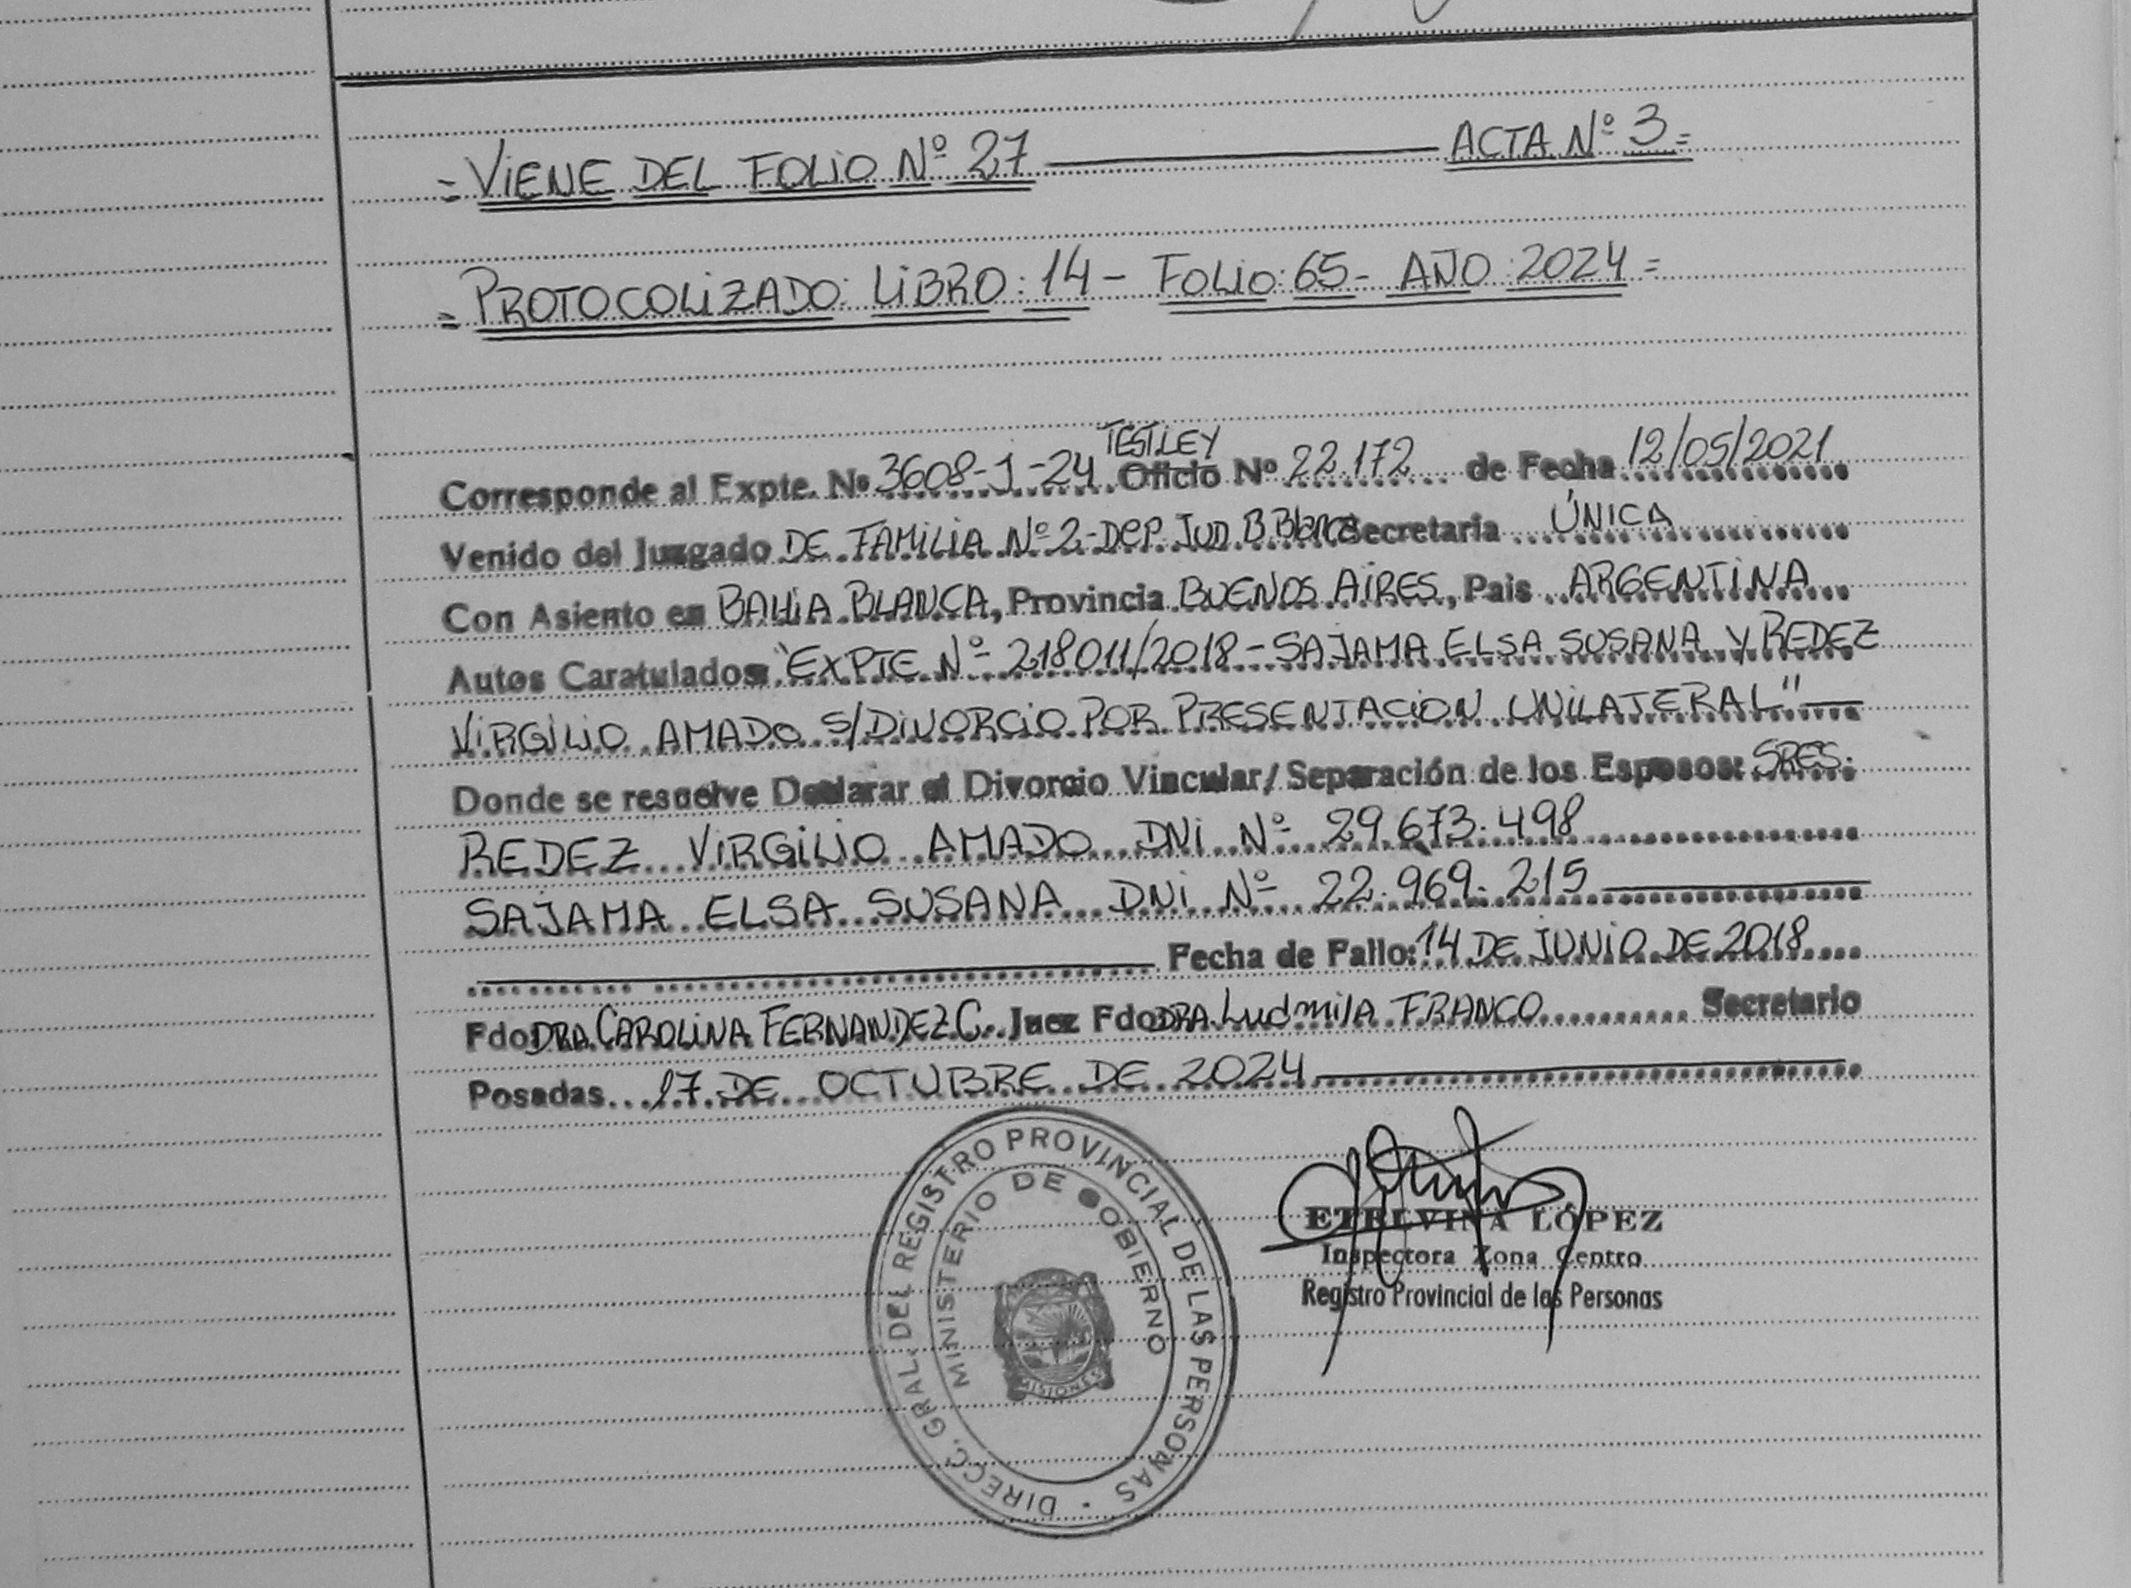 = VIENE DEL FOLIO Nº 27 ACTA Nº 3 =
= PROTOCOLIZADO: LIBRO: 14 - FOLIO: 65 - AÑO: 2024 =
TEST.LEY
Corresponde al Expte. Nº 3608-J-24 Oficio Nº 22.172 de Fecha 12/05/2021
Venido del Juzgado DE FAMILIA Nº 2- DEP. JUD. B Blanca Secretaria ÚNICA
Con Asiento en BAHIA BLANCA, Provincia BUENOS AIRES, Pais ARGENTINA
Autos Caratulados: "EXPTE Nº 218011/2018 - SAJAMA ELSA SUSANA Y REDEZ
VIRGILIO AMADO S/DIVORCIO POR PRESENTACION UNILATERAL"
Donde se resuelve Declarar el Divorcio Vincular/Separación de los Esposos: SRES.
REDEZ VIRGILIO AMADO DNI Nº 29.673.498
SAJAMA ELSA SUSANA DNI Nº 22.969.215
Fecha de Fallo: 14 DE JUNIO DE 2018
Fdo DRA. CAROLINA FERNANDEZ C. Juez Fdo DRA. Ludmila FRANCO Secretario
Posadas 17 DE OCTUBRE DE 2024
DIRECC. GRAL. DEL REGISTRO PROVINCIAL DE LAS PERSONAS
MINISTERIO DE GOBIERNO
MISIONES
ETELVINA LÓPEZ
Inspectora Zona Centro
Registro Provincial de las Personas